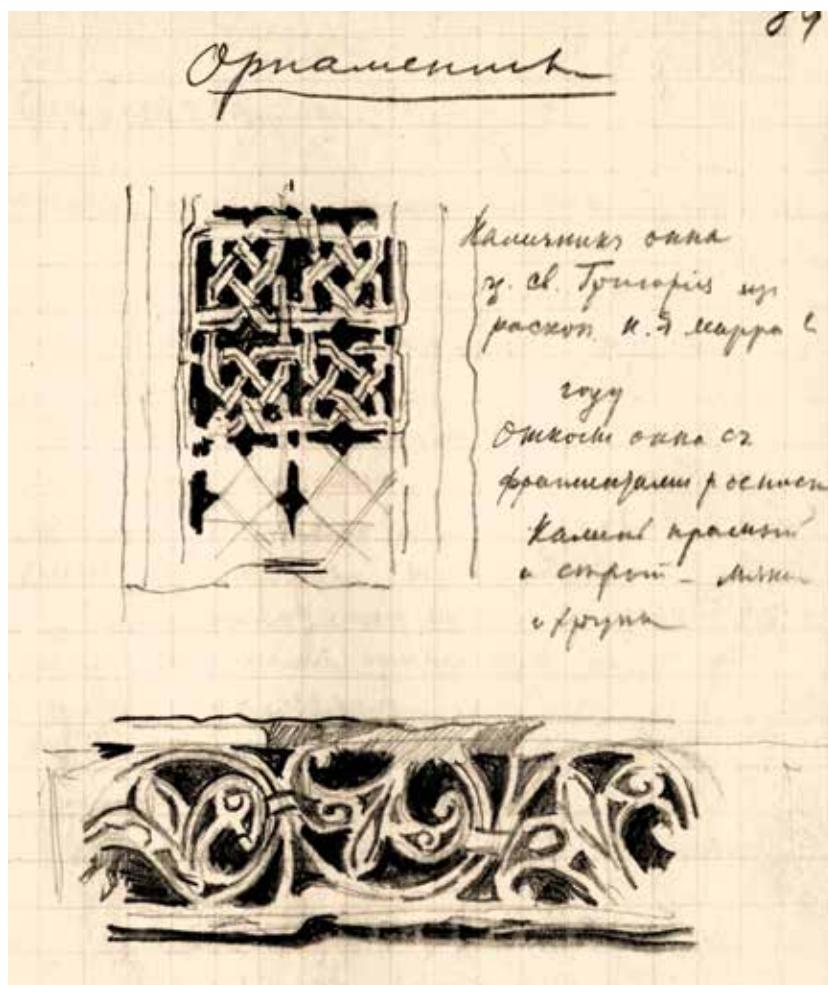 89
Орнаментъ
Наличникъ окна
ц. св. Григорія из
раскоп. Н. Я Марра в
году
Откосы окна съ
фрагментами росписи
Камень красный
и серый
и хрупк